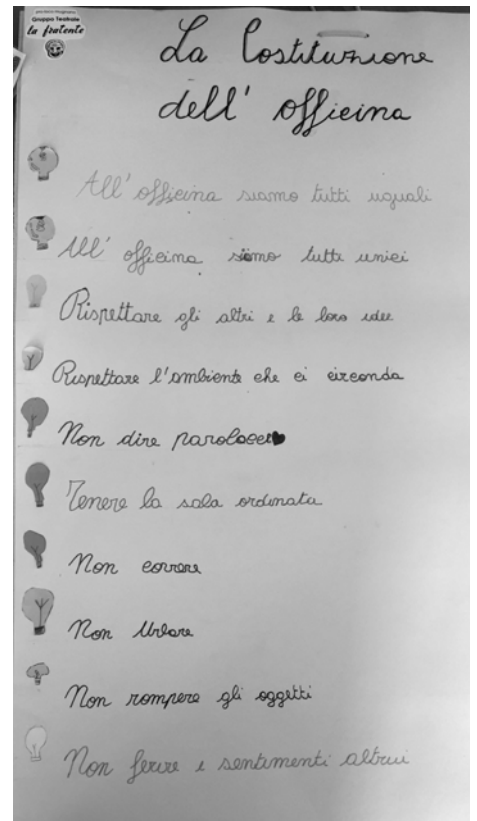 Gruppo Teatrale
la fratente
La Costituzione
dell' officina
All'officina siamo tutti uguali
All' officina siamo tutti unici
Rispettare gli altri e le loro idee
Rispettare l'ambiente che ci circonda
Non dire parolacce
Tenere la sala ordinata
Non correre
Non Urlare
Non rompere gli oggetti
Non ferire i sentimenti altrui